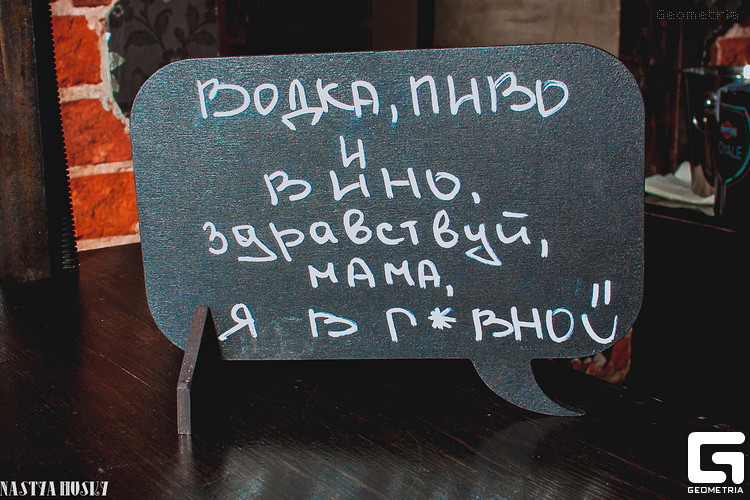 Geometria
ВОДКА, ПИВО
И
ВИНО,
здравствуй,
МАМА,
Я В Г*ВНО
OYALE
NASTYA HUSKY
GEOMETRIA